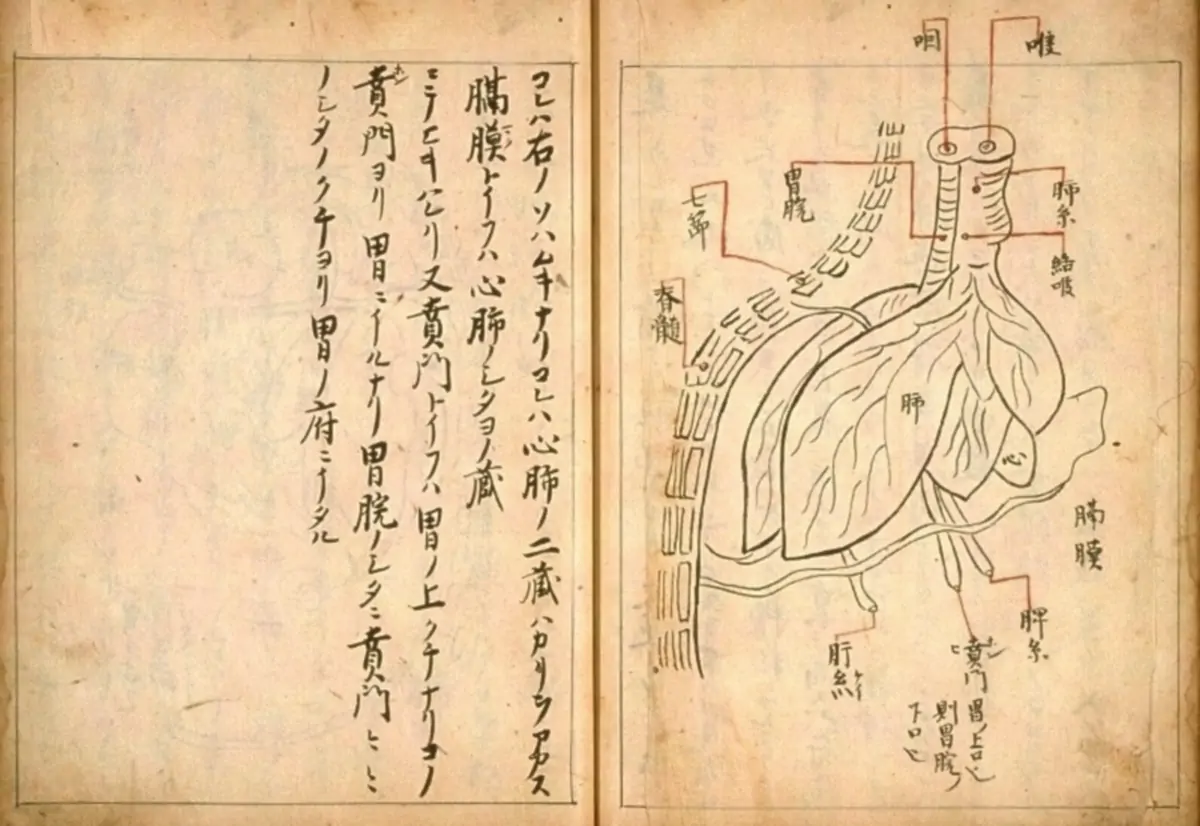 咽
喉
コレハ右ノソハムキナリコレハ心肺ノ二蔵ハカリヲアカス
膈膜トイフハ心肺ノシタヨノ蔵
又賁門トイフハ胃ノ上クチナリコノ
賁門ヨリ胃ニイルナリ胃脘ノシタニ賁門
ノシタノクチヨリ胃ノ府ニイタル
胃脘
七節
脊髓
肺系
肺
心
膈膜
脾系
肝
賁門
胃ノ上口也
則胃脘ノ
下口也